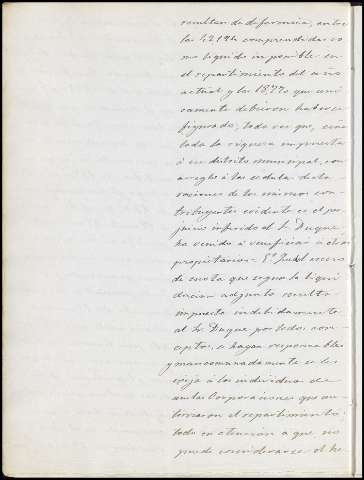 resultan de diferencia, entre
las 4.219 comprendidas co
mo liquido imponible en
el repartimiento del año
actual y las 1.877 que uni
camente debieron haberse
figurado, toda vez que, 
toda la riqueza impuesta
á su distrito municipal, con
arreglo á las cedulas decla
raciones de los mismos con
tribuyentes evidente es el per
juicio inferido al Sr Duque,
ha venido á beneficiar á otros
propietarios = 5º Que el exceso
de cuota que segun la liqui
dacion adjunta resulta
impuesta indebidamente
al Sr Duque por todos con
ceptos, se hagan responsables
y mancomunadamente se les
exija á los individuos de
ambas Corporaciones que au
torizaron el repartimiento:
todo en atencion á que no
puede considerarse el he